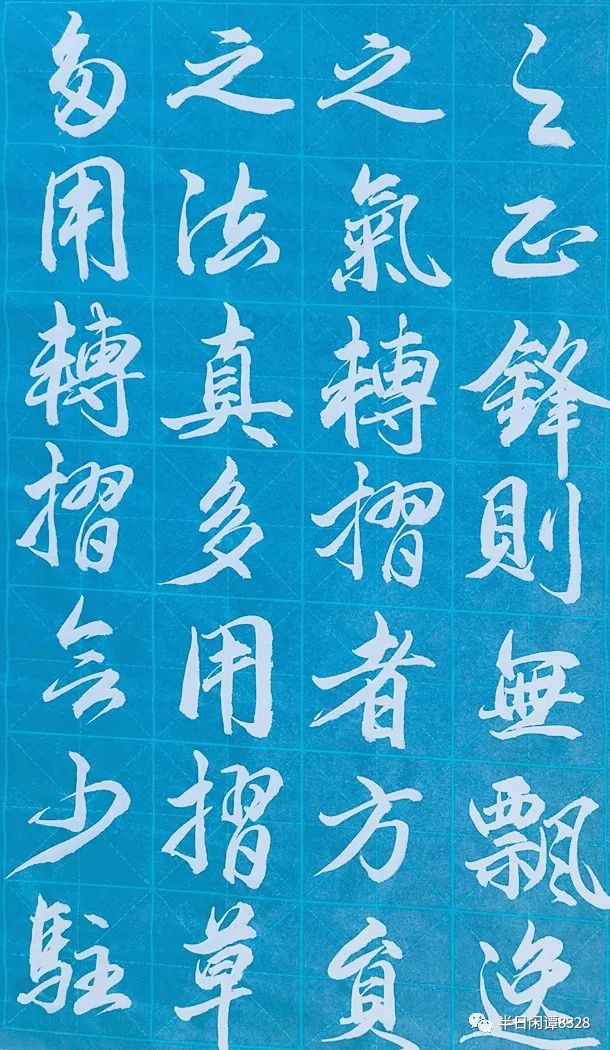 之正鋒則無飄逸
之氣轉摺者方員
之法真多用摺草
多用轉摺会少駐
半日闲谭8328